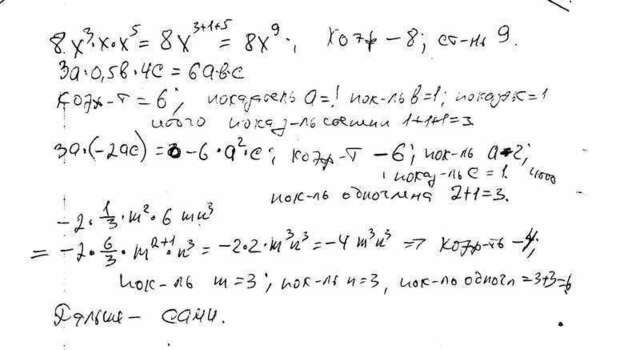 8·x³·x·x⁵ = 8x³⁺¹⁺⁵ = 8x⁹; коэф – 8; ст-нь 9.
3a·0,5b·4c = 6a·b·c
коэф-т = 6; показатель a=1 пок-ль b=1; показ c=1
итого показ-ль 1+1+1=3.
3a·(-2ac) = -6·a²·c; коэф-т -6; пок-ль a-2;
показ-ль c=1.
пок-ль одночлена 2+1=3.
-2·1/3·m²·6mn³
= -2·6/3·m²⁺¹·n³ = -2·2·m³n³ = -4m³n³ => коэф-ть -4;
пок-ль m=3; пок-ль n=3, пок-ль одночл=3+3=6
Дальше – сами.